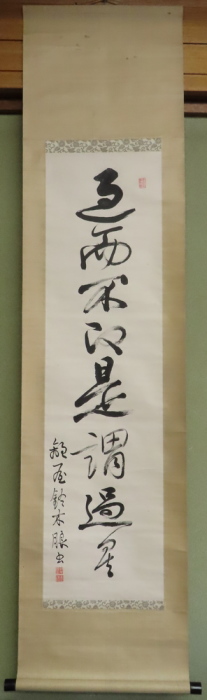 過而不改是謂過矣
鈴木書